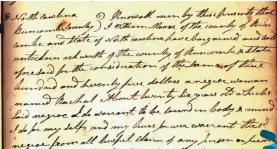 North Carolina } Know all men by these presents that
Buncombe County } I William Moore of the county of Bun
combe and State of North Carolina have bargained and sold
unto of the county of Buncombe & state
afore said for the consideration of the sum of three
hundred and seventy five dollars a negroe woman
named Rachel About twenty six years old which
said negroe I do warant to be sound in body & mind
I do for my self and my heirs for ever warant the sd
negroe from all lawful claim of any person or person